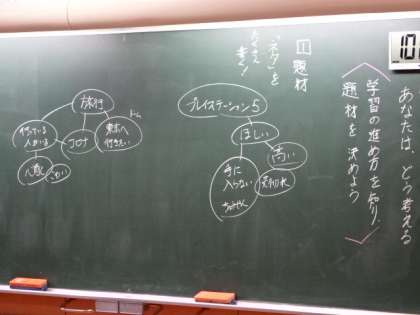 あなたは、どう考える
学習の進め方を知り、
題材を決めよう
1 題材
「ネタ」を
たくさん
書く!
プレイステーション5
ほしい
高い
手に
入らない
売り切れ
旅行
行っている
人がいる
コロナ
東京へ
行きたい
こわい